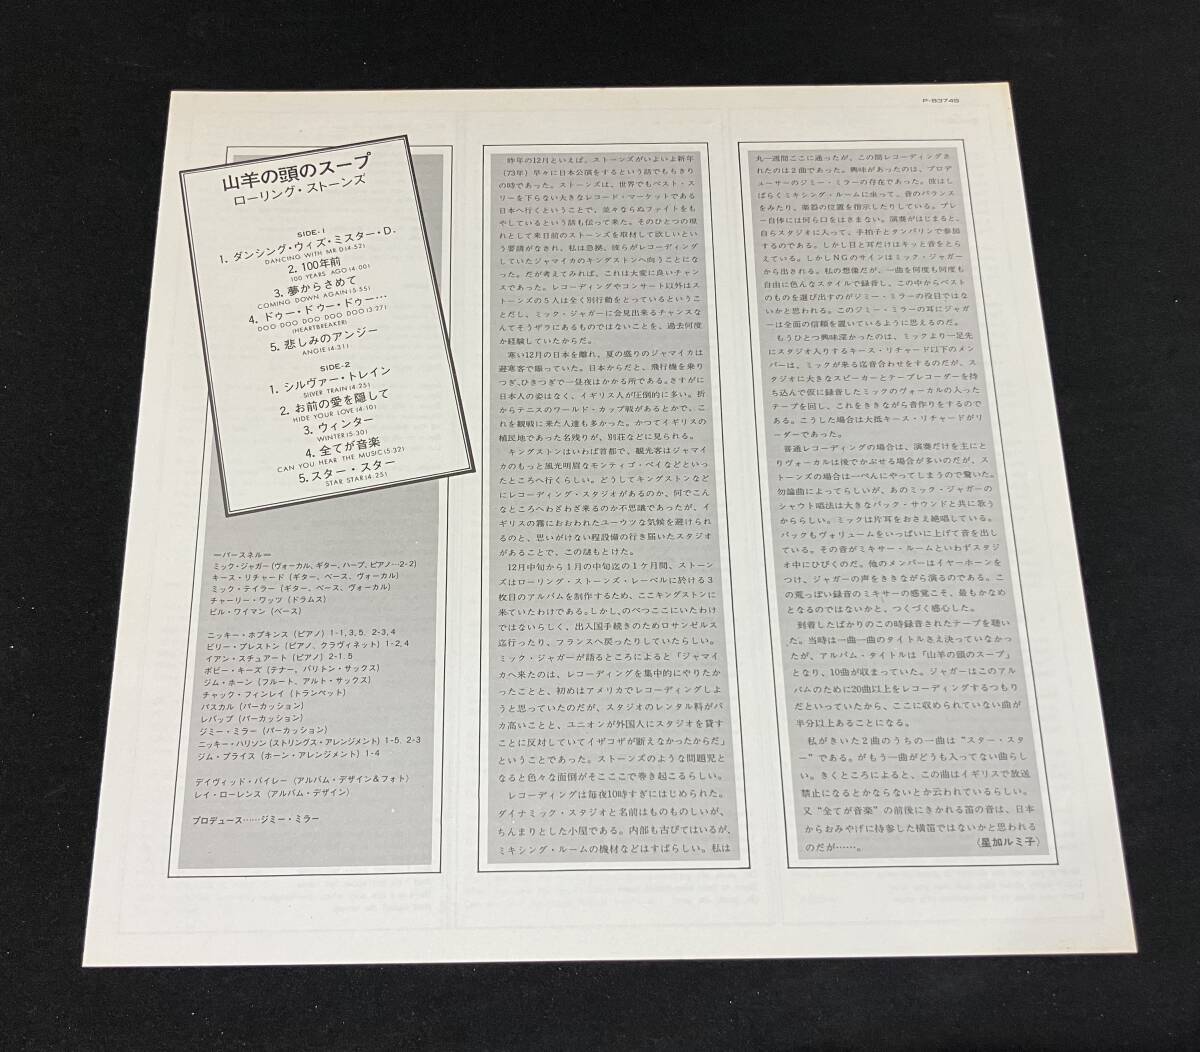 P-8374S
山羊の頭のスープ
ローリング・ストーンズ
SIDE-1
1. ダンシング・ウィズ・ミスター・D.
DANCING WITH MR D(4.52)
2. 100年前
100 YEARS AGO(4.00)
3. 夢からさめて
COMING DOWN AGAIN(5.55)
4. ドゥー・ドゥー・ドゥー…
DOO DOO DOO DOO DOO(3.27)
(HEARTBREAKER)
5. 悲しみのアンジー
ANGIE(4.31)
SIDE-2
1. シルヴァー・トレイン
SILVER TRAIN(4.25)
2. お前の愛を隠して
HIDE YOUR LOVE(4.10)
3. ウィンター
WINTER(5.30)
4. 全てが音楽
CAN YOU HEAR THE MUSIC(5.32)
5. スター・スター
STAR STAR(4.25)
—パースネル—
ミック・ジャガー(ヴォーカル、ギター、ハープ、ピアノ…2-2)
キース・リチャード(ギター、ベース、ヴォーカル)
ミック・テイラー(ギター、ベース、ヴォーカル)
チャーリー・ワッツ(ドラムス)
ビル・ワイマン(ベース)
ニッキー・ホプキンス(ピアノ) 1-1,3,5. 2-3,4
ビリー・プレストン(ピアノ、クラヴィネット) 1-2,4
イアン・スチュアート(ピアノ) 2-1.5
ボビー・キーズ(テナー、バリトン・サックス)
ジム・ホーン(フルート、アルト・サックス)
チャック・フィンレイ(トランペット)
パスカル(パーカッション)
レバップ(パーカッション)
ジミー・ミラー(パーカッション)
ニッキー・ハリソン(ストリングス・アレンジメント) 1-5. 2-3
ジム・プライス(ホーン・アレンジメント) 1-4
デイヴィッド・バイレー(アルバム・デザイン&フォト)
レイ・ローレンス(アルバム・デザイン)
プロデュース……ジミー・ミラー
昨年の12月といえば、ストーンズがいよいよ新年
(73年)早々に日本公演をするという話でもちきり
の時であった。ストーンズは、世界でもベスト・ス
リーを下らない大きなレコード・マーケットである
日本へ行くということで、並々ならぬファイトをも
やしているという話も伝って来た。そのひとつの現
れとして来日前のストーンズを取材して欲しいとい
う要請がなされ、私は急拠、彼らがレコーディング
していたジャマイカのキングストンへ向うことにな
った。だが考えてみれば、これは大変に良いチャン
スであった。レコーディングやコンサート以外はス
トーンズの5人は全く別行動をとっているというこ
とだし、ミック・ジャガーに会見出来るチャンスな
んてそうザラにあるものではないことを、過去何度
か経験していたからだ。
寒い12月の日本を離れ、夏の盛りのジャマイカは
避寒客で賑っていた。日本からだと、飛行機を乗り
つぎ、ひきつぎで一昼夜はかかる所である。さすがに
日本人の姿はなく、イギリス人が圧倒的に多い。折
からテニスのワールド・カップ戦があるとかで、こ
れを観戦に来た人達も多かった。かつてイギリスの
植民地であった名残りが、別荘などに見られる。
キングストンはいわば首都で、観光客はジャマイ
カのもっと風光明眉なモンティゴ・ベイなどといっ
たところへ行くらしい。どうしてキングストンなど
にレコーディング・スタジオがあるのか、何でこん
なところへわざわざ来るのか不思議であったが、イ
ギリスの霧におおわれたユーウツな気候を避けられ
るのと、思いがけない程設備の行き届いたスタジオ
があることで、この謎もとけた。
12月中旬から1月の中旬迄の1ケ月間、ストーン
ズはローリング・ストーンズ・レーベルに於ける3
枚目のアルバムを制作するため、ここキングストンに
来ていたわけである。しかし、のべつここにいたわけ
ではないらしく、出入国手続きのためロサンゼルス
迄行ったり、フランスへ戻ったりしていたらしい。
ミック・ジャガーが語るところによると「ジャマイ
カへ来たのは、レコーディングを集中的にやりたか
ったことと、初めはアメリカでレコーディングしよ
うと思っていたのだが、スタジオのレンタル料がバ
カ高いことと、ユニオンが外国人にスタジオを貸す
ことに反対していてイザコザが断えなかったからだ」
ということであった。ストーンズのような問題児と
なると色々な面倒がそこここで巻き起こるらしい。
レコーディングは毎夜10時すぎにはじめられた。
ダイナミック・スタジオと名前はものものしいが、
ちんまりとした小屋である。内部も古びてはいるが、
ミキシング・ルームの機材などはすばらしい。私は
丸一週間ここに通ったが、この間レコーディングさ
れたのは2曲であった。興味があったのは、プロデ
ューサーのジミー・ミラーの存在であった。彼はし
ばらくミキシング・ルームに坐って、音のバランス
をみたり、楽器の位置を指示したりしている。プレ
ー自体には何ら口をはさまない。演奏がはじまると、
自らスタジオに入って、手拍子とタンバリンで参加
するのである。しかし目と耳だけはキッと音をとら
えている。しかしNGのサインはミック・ジャガー
から出される。私の想像だが、一曲を何度も何度も
自由に色んなスタイルで録音し、この中からベスト
のものを選び出すのがジミー・ミラーの役目ではな
いかと思われる。このジミー・ミラーの耳にジャガ
ーは全面の信頼を置いているように思えるのだ。
もうひとつ興味深かったのは、ミックより一足先
にスタジオ入りするキース・リチャード以下のメン
バーは、ミックが来る迄音合わせをするのだが、ス
タジオに大きなスピーカーとテープレコーダーを持
ち込んで仮に録音したミックのヴォーカルの入った
テープを回し、これをききながら音作りをするので
ある。こうした場合は大抵キース・リチャードがリ
ーダーであった。
普通レコーディングの場合は、演奏だけを主にと
りヴォーカルは後でかぶせる場合が多いのだが、ス
トーンズの場合は一ぺんにやってしまうので驚いた。
勿論曲によってらしいが、あのミック・ジャガーの
シャウト唱法は大きなバック・サウンドと共に歌う
かららしい。ミックは片耳をおさえ絶唱している。
バックもヴォリュームをいっぱいに上げて音を出し
ている。その音がミキサー・ルームといわずスタジ
オ中にひびくのだ。他のメンバーはイヤーホーンを
つけ、ジャガーの声をききながら演るのである。こ
の荒っぽい録音のミキサーの感覚こそ、最もかなめ
となるのではないかと、つくづく感心した。
到着したばかりのこの時録音されたテープを聴い
た。当時は一曲一曲のタイトルさえ決っていなかっ
たが、アルバム・タイトルは「山羊の頭のスープ」
となり、10曲が収まっていた。ジャガーはこのアル
バムのために20曲以上をレコーディングするつもり
だといっていたから、ここに収められていない曲が
半分以上あることになる。
私がきいた2曲のうちの一曲は“スター・スタ
ー”である。がもう一曲がどうも入ってない曲らし
い。きくところによると、この曲はイギリスで放送
禁止になるとかならないとか云われているらしい。
又“全てが音楽”の前後にきかれる笛の音は、日本
からおみやげに持参した横笛ではないかと思われる
のだが……。
(星加ルミ子)